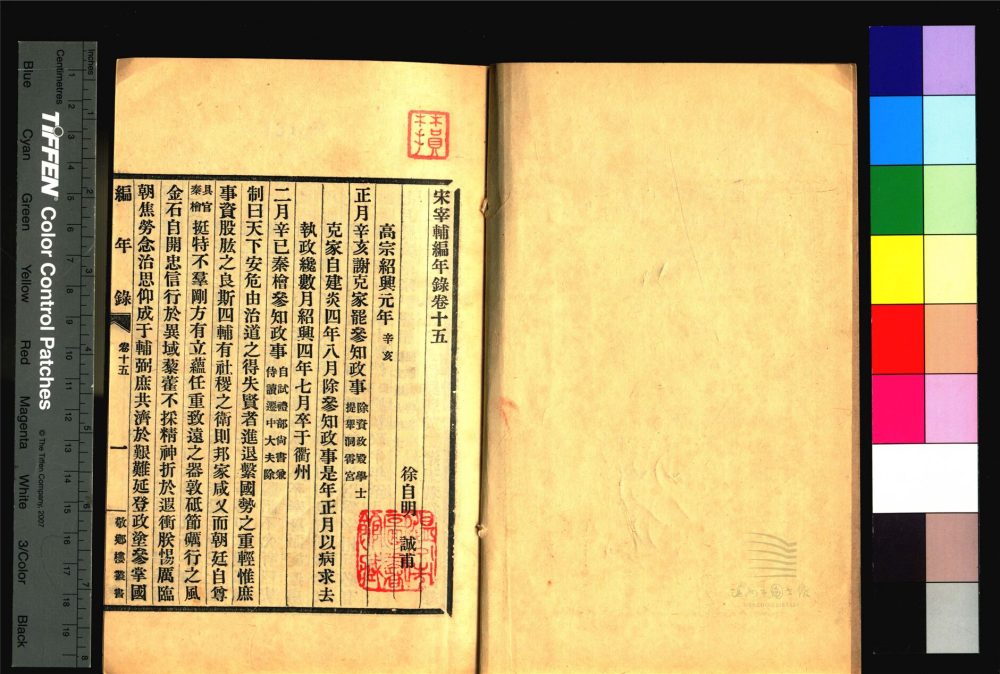 宋宰輔編年錄卷十五
徐自明 誠甫
高宗紹興元年 辛亥
正月辛亥謝克家罷參知政事 除資政殿學士提舉洞霄宮
克家自建炎四年八月除參知政事是年正月以病求去
執政纔數月紹興四年七月卒于衢州
二月辛巳秦檜參知政事 自試禮部尚書兼侍讀遷中大夫除
制曰天下安危由治道之得失賢者進退繫國勢之重輕惟庶
事資股肱之良斯四輔有社稷之衛則邦家咸乂而朝廷自尊
具官秦檜 挺特不羣剛方有立蘊任重致遠之器敦砥節礪行之風
金石自開忠信行於異域藜藿不採精神折於遐衝朕惕厲臨
朝焦勞念治思仰成于輔弼庶共濟於艱難延登政塗參掌國
編年錄 卷十五 一 敬鄉樓叢書
Inches
Centimetres
TIFFEN Color Control Patches
© The Tiffen Company, 2007
Blue Cyan Green Yellow Red Magenta White 3/Color Black